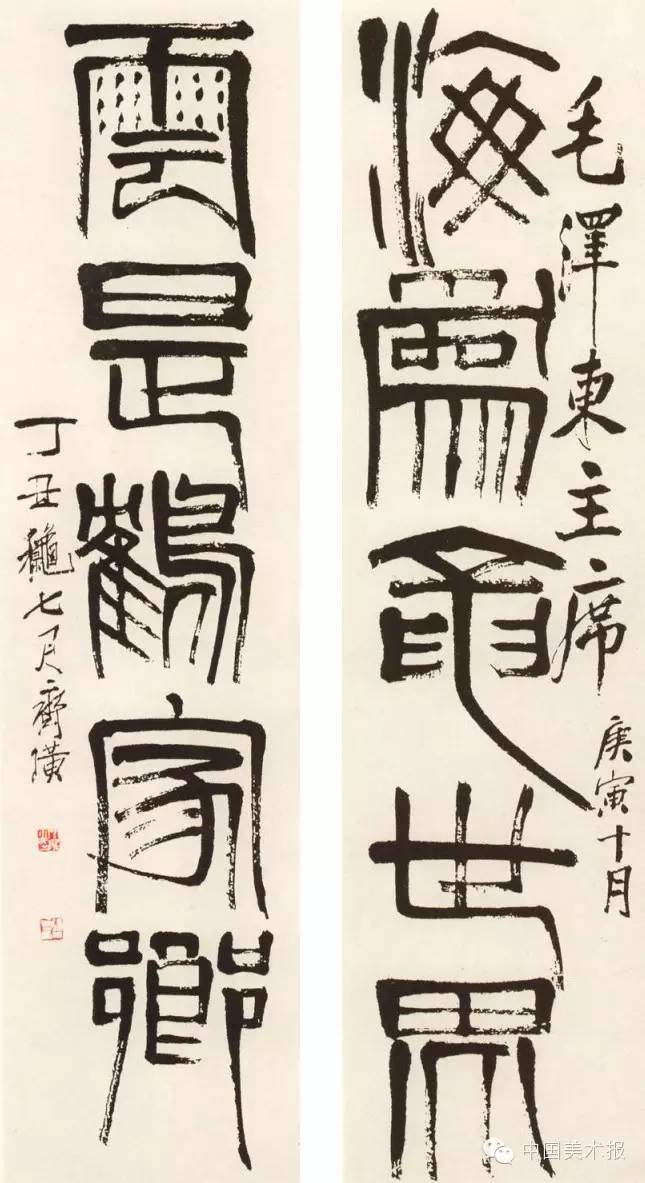 毛澤東主席
庚寅十月
海為龜世界
雲是鶴家鄉
丁丑龝七月齊璜
中国美术报